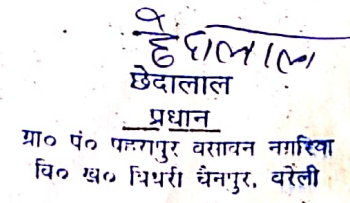 छेदालाल
छेदालाल
प्रधान
ग्रा० पं० पहरापुर वसावन नगरिया
वि० ख० बिथरी चैनपुर, बरेली